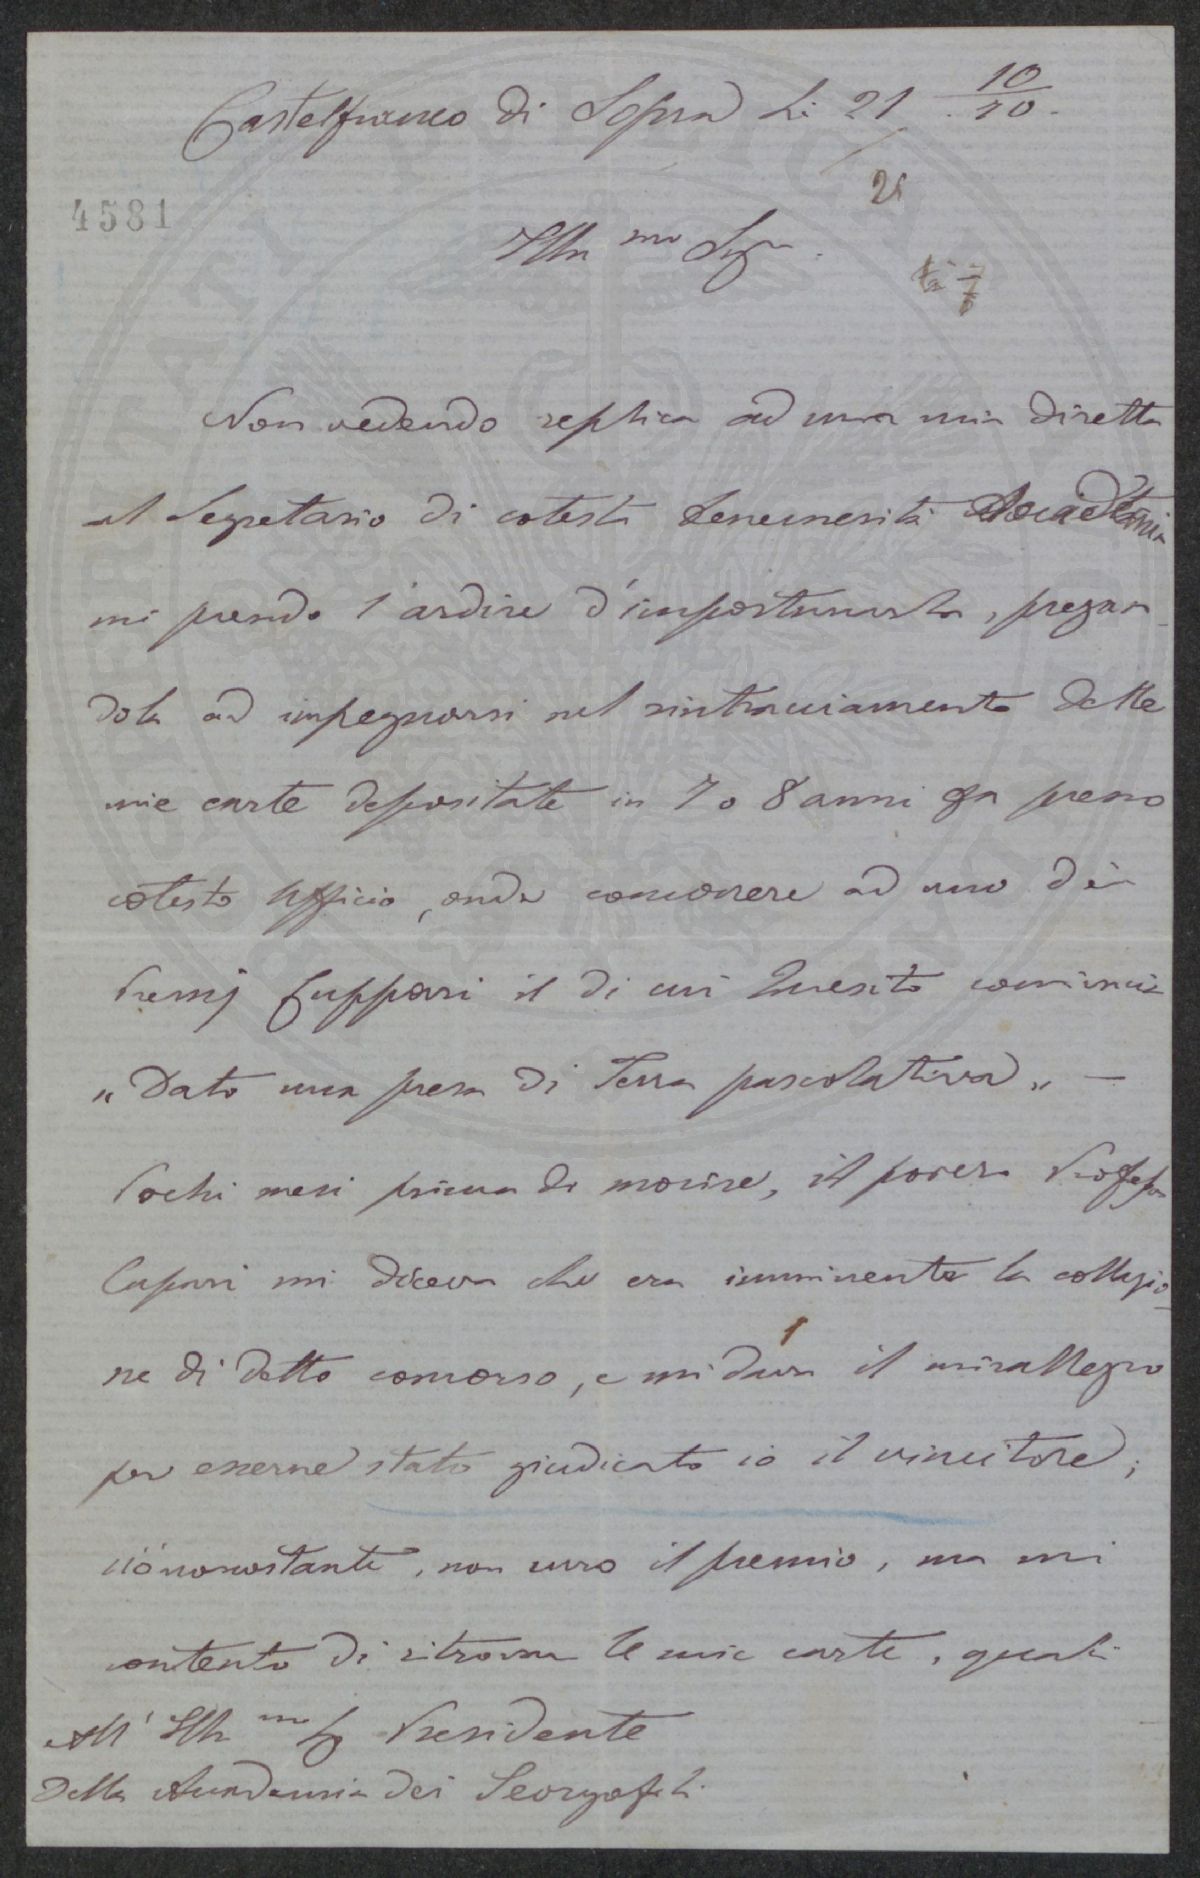 Castelfranco di Sopra li 21 10/70.
21
4581
Ill.mo Sig.
Non vedendo replica ad una mia diretta
al Segretario di cotesta benemerita Accademia
mi prendo l'ardire d'importunarla, pregan-
dola ad impegnarsi nel rintracciamento delle
mie carte depositate in 7 o 8 anni fa presso
cotesto Ufficio, onde concorrere ad uno dei
Premj Cuppari il di cui Quesito comincia
"Dato una presa di Terra pascolativa" —
Pochi mesi prima di morire, il povero Professor
Cupari mi diceva che era imminente la collazio-
ne di detto concorso, e mi dava il mirallegro
per esserne stato giudicato io il vincitore;
ciò nonostante, non curo il premio, ma mi
contento di ritrovar le mie carte, quali
All' Ill.mo Sig Presidente
Della Accademia dei Georgofili